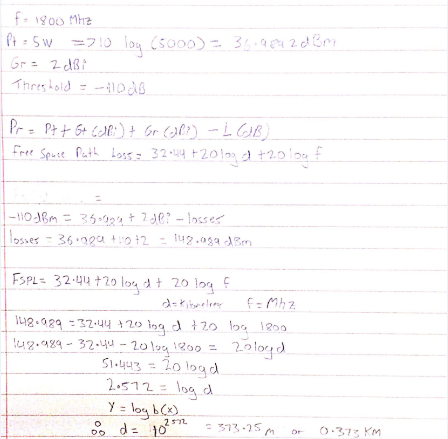 f = 1800 Mhz
Pt = 5W => 10 log (5000) = 36.9892 dBm
Gr = 2 dBi
Threshold = -110 dB
Pr = Pt + Gt (dBi) + Gr (dBi) - L (dB)
Free Space Path Loss = 32.44 + 20 log d + 20 log f
=
-110 dBm = 36.989 + 2 dBi - losses
losses = 36.989 + 110 + 2 = 148.989 dBm
FSPL = 32.44 + 20 log d + 20 log f
d = kilometer f = Mhz
148.989 = 32.44 + 20 log d + 20 log 1800
148.989 - 32.44 - 20 log 1800 = 20 log d
51.443 = 20 log d
2.572 = log d
Y = log b (x)
∴ d = 10^2.572 = 373.25 m or 0.373 KM